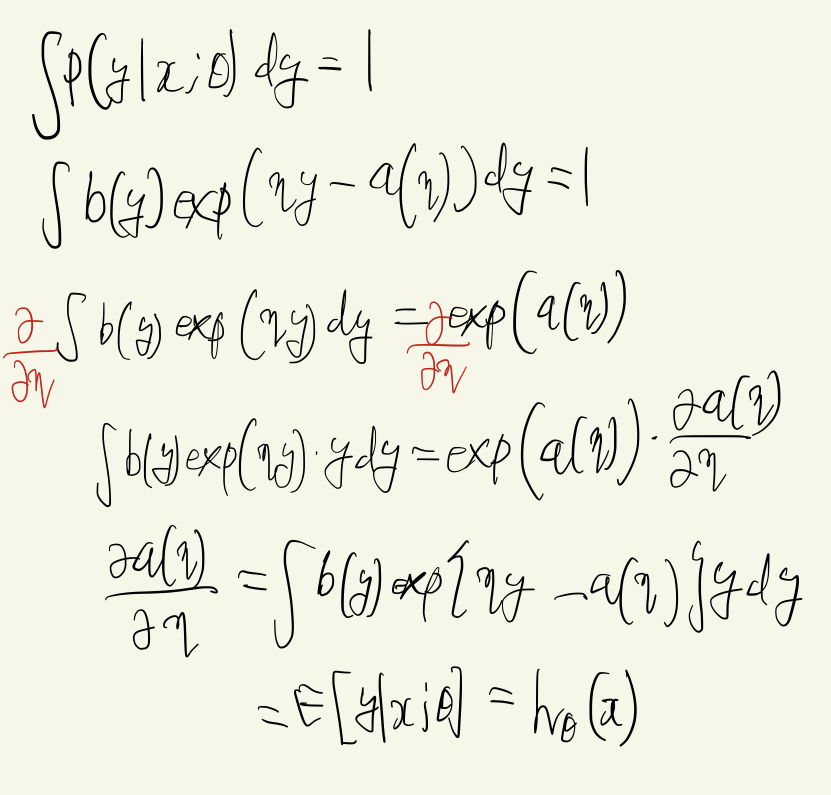 ∫p(y|x;θ) dy = 1
∫ b(y) exp(ηy − a(η)) dy = 1
∂/∂η ∫ b(y) exp (ηy) dy = ∂/∂η exp(a(η))
∫ b(y) exp(ηy) · y dy = exp(a(η)) · ∂a(η)/∂η
∂a(η)/∂η = ∫ b(y) exp{ηy − a(η)} y dy
= E[y|x;θ] = hθ(x)